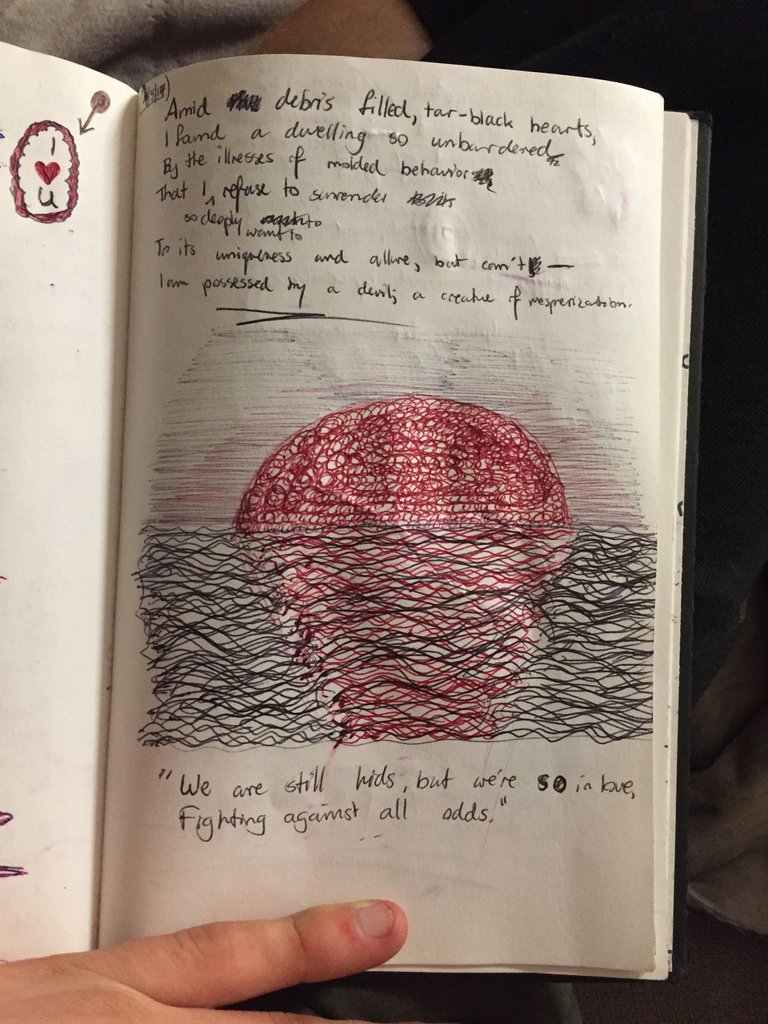 I
♥
U
Amid debris filled, tar-black hearts,
I found a dwelling so unburdened
By the illnesses of molded behavior
That I refuse to surrender
so deeply want to
To its uniqueness and allure, but can't —
I am possessed by a devil; a creature of mesmerization.
"We are still kids, but we're so in love,
Fighting against all odds."